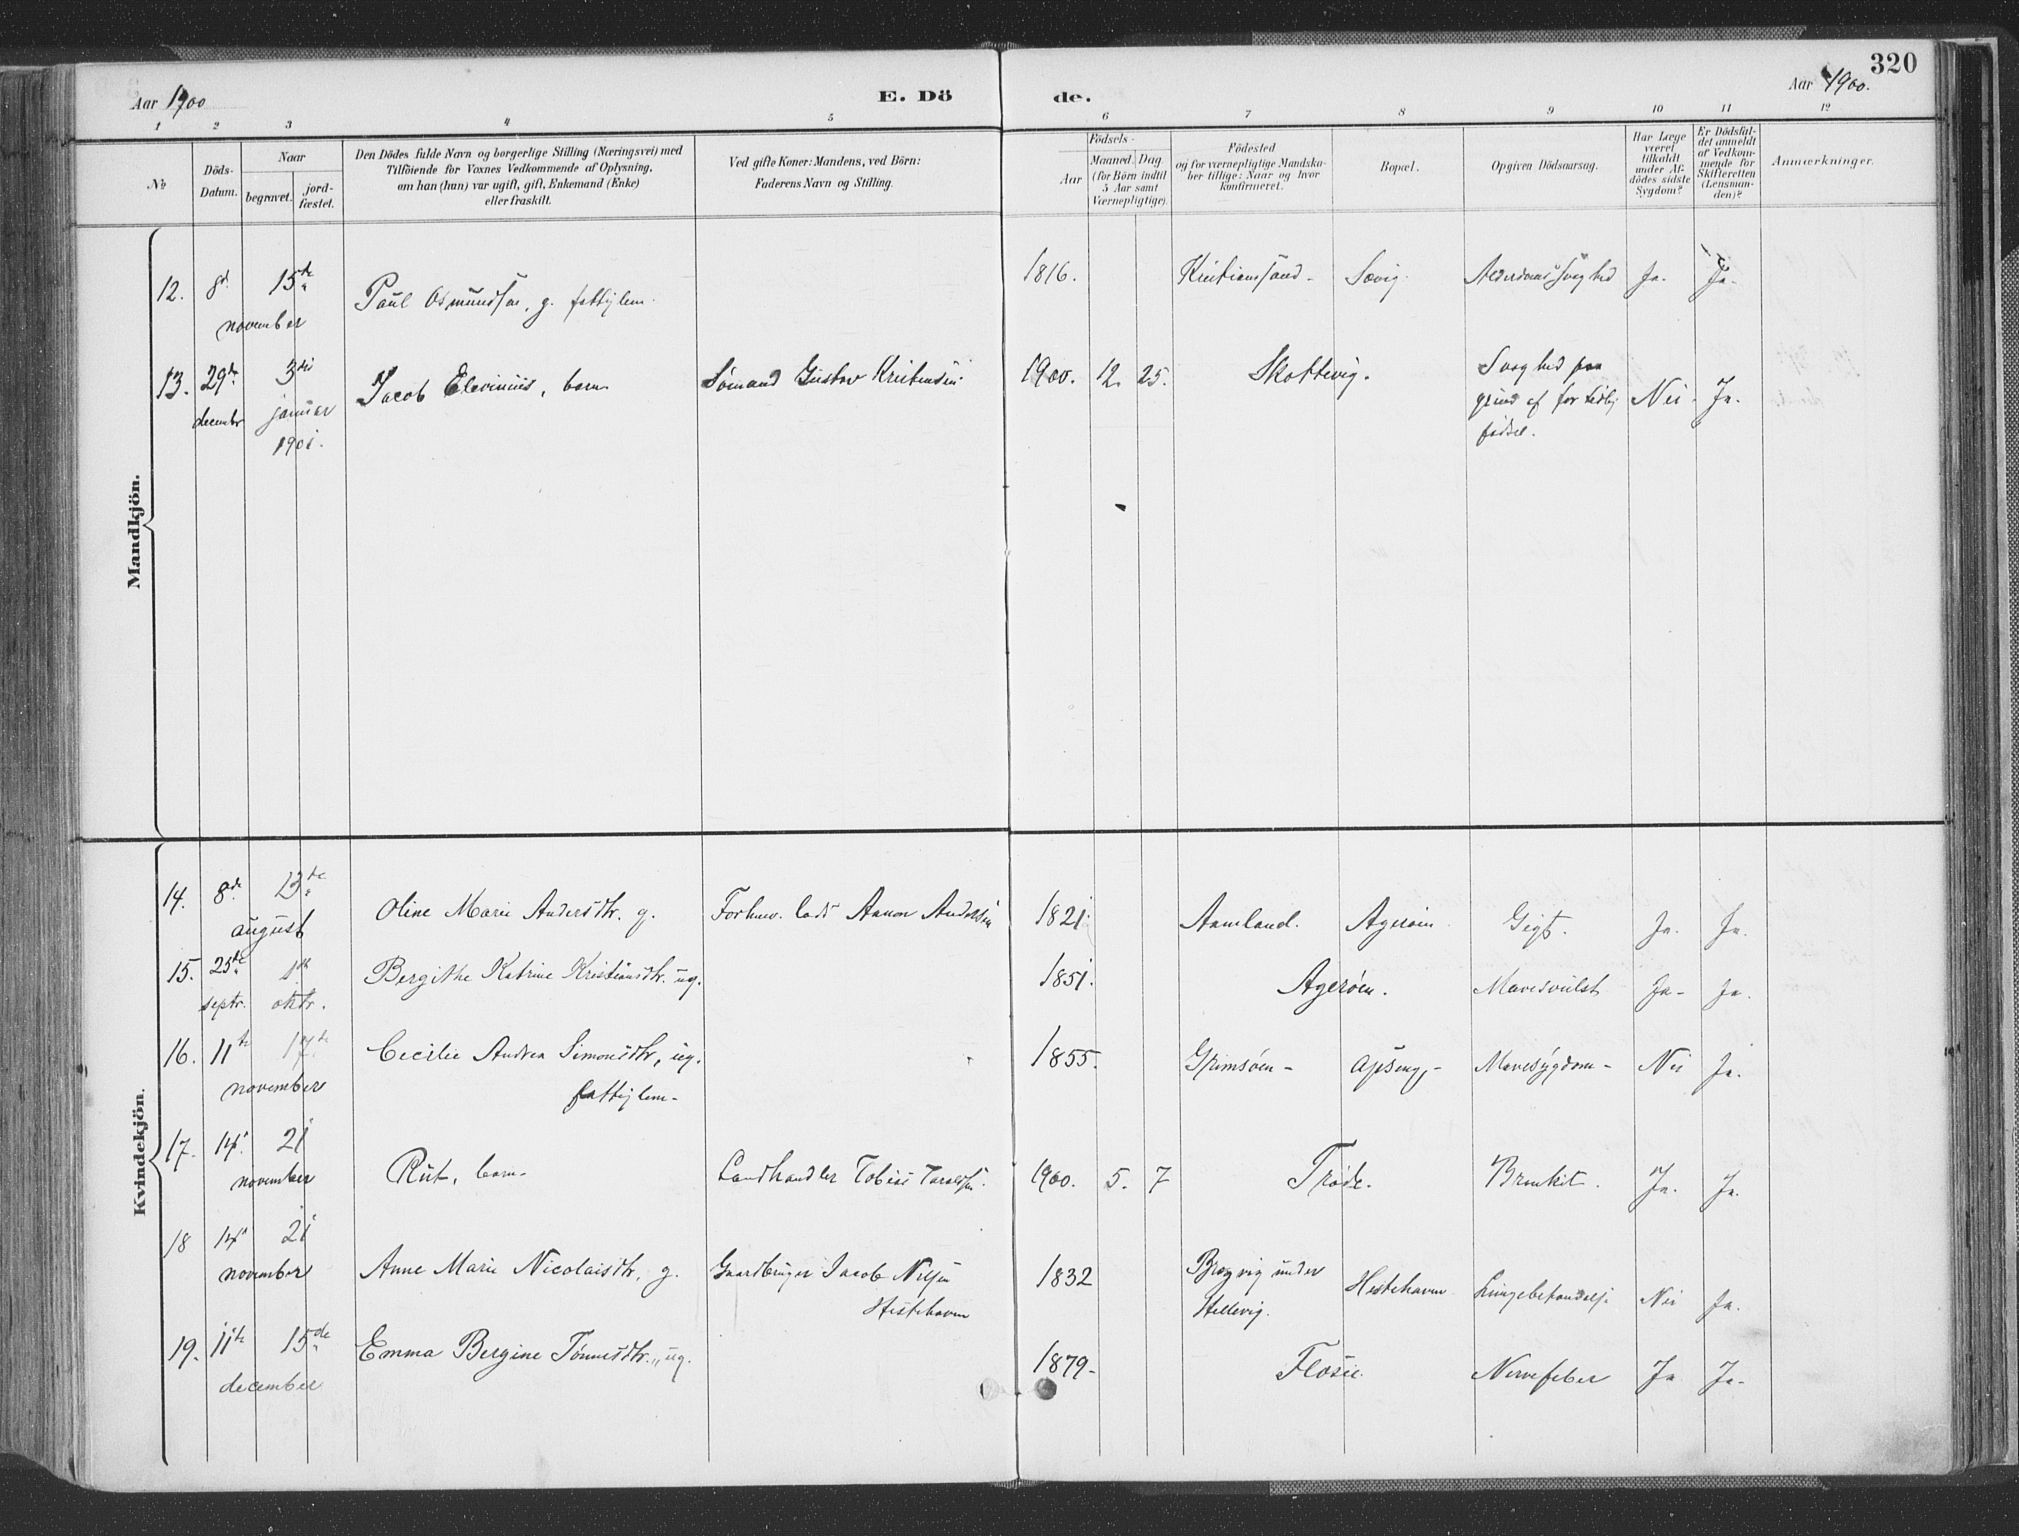 320
Aar 1900
E. Dö
de.
Aar 1900.
1 2 3 4 5 6 7 8 9 10 11 12
№
Döds-
Datum.
Naar
begravet.
jord-
fæstet.
Den Dödes fulde Navn og borgerlige Stilling (Næringsvei) med
Tilföiende for Voxnes Vedkommende af Oplysning,
om han (hun) var ugift, gift, Enkemand (Enke)
eller fraskilt.
Ved gifte Koner: Mandens, ved Börn:
Faderens Navn og Stilling.
Födsels-
Aar
Maaned. Dag.
(for Börn indtil
5 Aar samt
Værnepligtige).
Födested
og for værnepligtige Mandska-
ber tillige: Naar og hvor
konfirmeret.
Bopæl.
Opgiven Dödsaarsag.
Har Læge
været
tilkaldt
under Af-
dödes sidste
Sygdom?
Er Dödsfal-
det anmeldt
af Vedkom-
mende for
Skifteretten
(Lensman-
den)?
Anmærkninger.
Mandkjön.
12. 8d 15de Paul Osmundsen, g. fattiglem. 1816. Kristianssand - Sævig. Alderdomssvaghed Ja. Ja.
november
13. 29de 3die Jacob Elevinius, barn Sömand Gustav Kristensen. 1900. 12. 25. Skottevig. Svaghed paa
decembr januar grund af for tidlig Nei. Ja.
1901. fødsel.
Kvindekjön.
14. 8de 13de Oline Marie Andersdtr. g. Forhenv. lods Aanon Andersen 1821. Aamland. Agerøen. Gigt. Ja. Ja.
august
15. 25de 1ste Bergithe Katrine Kristiansdtr. ug. 1851. Agerøen. Mavesvulst Ja- Ja.
septr. oktr.
16. 11te 17de Cecilie Andrea Simonsdtr, ug. 1855. Grimsøen - Mavesygdom - Nei Ja.
november fattiglem-
17. 14. 21 Rut, barn- Landhandler Tobias Taraldsen. 1900. 5. 7 Trøde. Bronkit. Ja. Ja.
november
18 14 21 Anne Marie Nicolaisdtr, g. Gaardbruger Jacob Nilsen 1832 under Hestehaven Nei Ja.
november Hestehaven Hellevig.
19. 11te 15de Emma Bergine Tönnesdtr., ug. 1879- Flosie. Nervefeber Ja Ja-
december